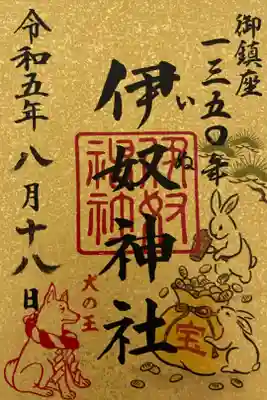 御鎮座
一三五〇年
伊奴神社
いぬ
伊奴神社
令和五年八月十八日
犬の王
宝